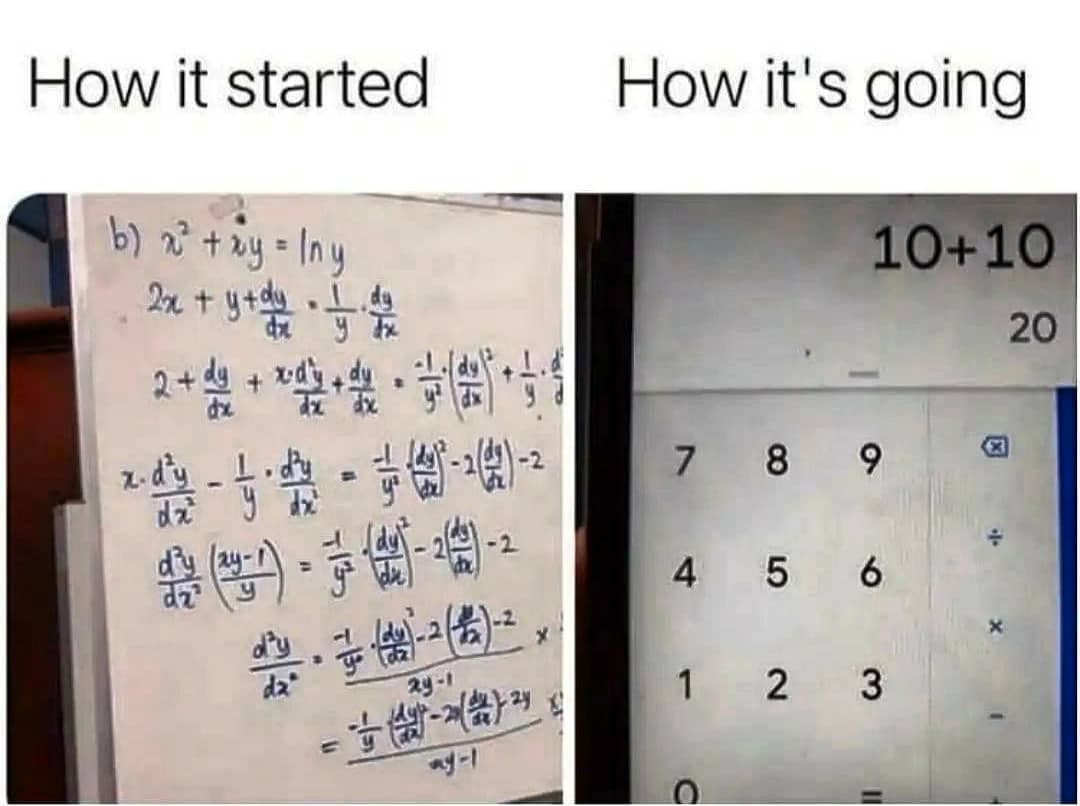 How it started
How it's going
b) x² + xy = ln y
2x + y + dy/dx = 1/y · dy/dx
2 + dy/dx + x·d²y/dx + dy/dx = -1/y² · (dy/dx)² + 1/y ·
x · d²y/dx² - 1/y · d²y/dx² = -1/y² · (dy/dx)² - 2(dy/dx) - 2
d²y/dx² (xy-1/y) = -1/y² · (dy/dx)² - 2(dy/dx) - 2
d²y/dx² = -1/y² · (dy/dx)² - 2(dy/dx) - 2 / xy-1 ×
= -1/y (dy/dx)² - 2y(dy/dx) - 2y / xy-1
10+10
20
7 8 9
÷
4 5 6
×
1 2 3
−
0 =